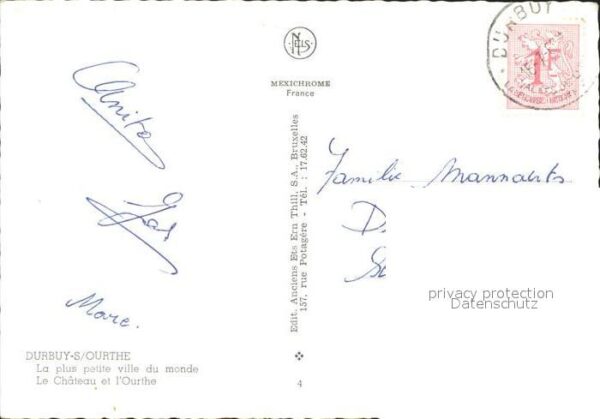 NELS
MEXICHROME
France
DURBUY
1F
Anita
Familie Mannaerts
D
Marc.
privacy protection
Datenschutz
Edit. Anciens Ets Ern Thill, S.A., Bruxelles
157, rue Potagère - Tél. : 17.62.42
DURBUY-S/OURTHE
La plus petite ville du monde
Le Château et l'Ourthe
4